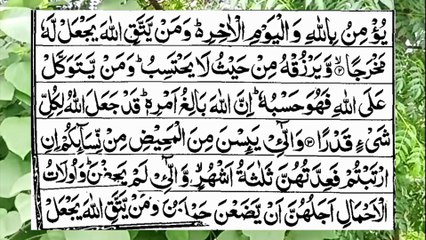 يُؤْمِنُ بِاللّٰهِ وَالْيَوْمِ الْاٰخِرِ ؕ وَمَنْ يَّتَّقِ اللّٰهَ يَجْعَلْ لَّهٗ
مَخْرَجًا ۙ وَّيَرْزُقْهُ مِنْ حَيْثُ لَا يَحْتَسِبُ ؕ وَمَنْ يَّتَوَكَّلْ
عَلَى اللّٰهِ فَهُوَ حَسْبُهٗ ؕ اِنَّ اللّٰهَ بَالِغُ اَمْرِهٖ ؕ قَدْ جَعَلَ اللّٰهُ لِكُلِّ
شَىْءٍ قَدْرًا ۞ وَالّٰٓـِٔىْ يَئِسْنَ مِنَ الْمَحِيْضِ مِنْ نِّسَآئِكُمْ اِنِ
ارْتَبْتُمْ فَعِدَّتُهُنَّ ثَلٰثَةُ اَشْهُرٍ ۙ وَّالّٰٓـِٔىْ لَمْ يَحِضْنَ ؕ وَاُولَاتُ
الْاَحْمَالِ اَجَلُهُنَّ اَنْ يَّضَعْنَ حَمْلَهُنَّ ؕ وَمَنْ يَّتَّقِ اللّٰهَ يَجْعَلْ